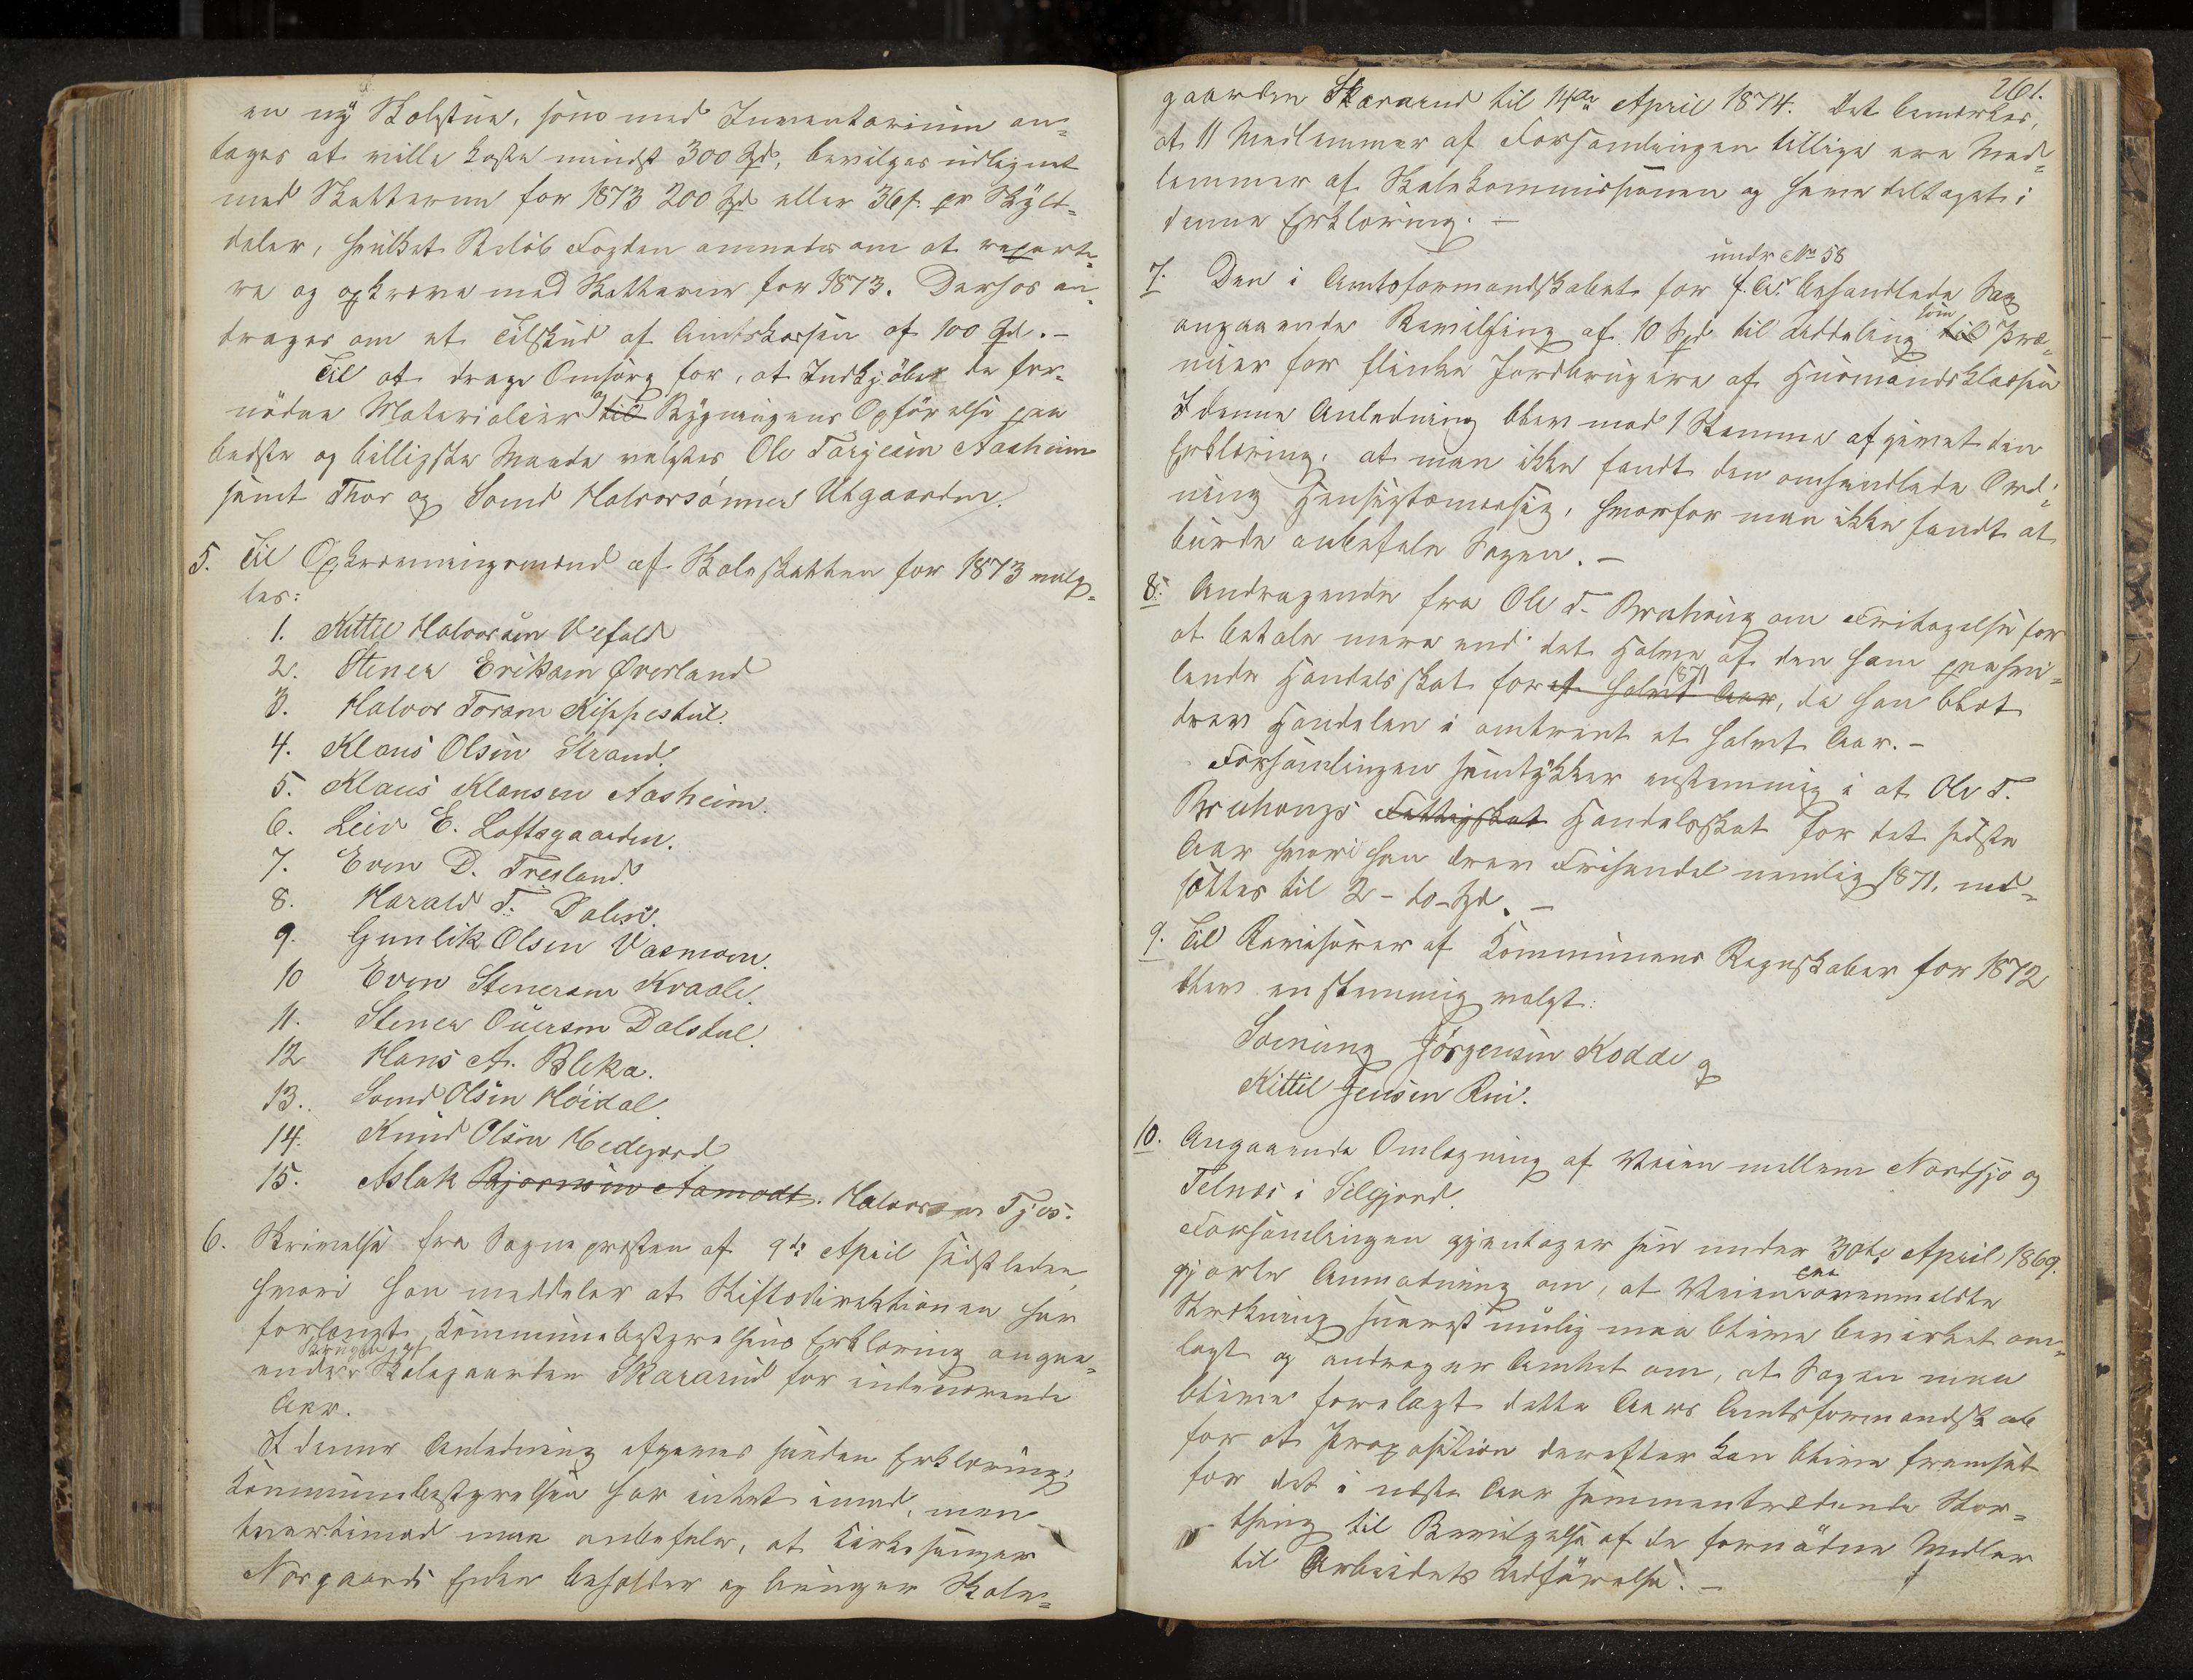 en ny Skolestue, som med Inventarium an-
tages at ville koste mindst 300 Spd, bevilges udlignet
med Skatterne for 1873 200 Spd eller 36 s. pr Skyld-
daler, hvilket Beløb Fogden anmodes om at reparte-
re og opkræve med Skatterne for 1873. Derhos an-
drages om et Tilskud af Amtskassen af 100 Spd. -
Til at drage Omsorg for, at Indkjøbet de for-
nødne Materialier og til Bygningens Opførelse paa
bedste og billigste Maade valgtes Ole Torjeisen Aasheim
samt Thor og Somd Halvorsønner Utgaarden.
5. Til Opkrævningsmænd af Skoleskatten for 1873 valg-
tes:
1. Kittil Halvorsen Vefald
2. Stener Eriksen Øverland
3. Halvor Torsen Kippestul.
4. Klaus Olsen Strand.
5. Klaus Klausen Aasheim.
6. Leiv E. Loftsgaarden.
7. Even D. Træland.
8. Harald T. Dalen.
9. Gunlik Olsen Vaamoen.
10 Even Stenersen Kraale.
11. Stener Duersen Dalstul.
12 Hans A. Bleka.
13. Somd Olsen Høidal.
14. Knud Olsen Hedejord
15. Aslak Bjørnsen Aamodt. Halvorsen Tjos.
6. Skrivelse fra Sognepræsten af 9de April sidstleden
hvori han meddeler at Stiftsdirektionen har
forlangt Kommunebestyrelsens Erklæring angaa-
Brugen af
ende Skolegaarden Skaraerud for indeværende
Aar.
I denne Anledning afgaves saadan Erklæring:
Kommunebestyrelsen har intet imod, men
tvertimod maa anbefale, at Kirkesanger
Norgaards Enke beholder og bruger Skole-
261.
gaarden Skaraerud til 14de April 1874. Det bemærkes,
at 11 Medlemmer af Forsamlingen tillige ere Med-
lemmer af Skolekommissionen og have deltaget i
denne Erklæring. -
under No 58
7. Den i Amtsformandskabet for f. A. behandlede Sag
som
angaaende Bevilgning af 10 Spd til Uddeling til Præ-
mier for flinke Jordbrugere af Husmandsklassen
I denne Anledning blev mod 1 Stemme afgivet den
Erklæring, at man ikke fandt den omhandlede Ord-
ning Hensigtsmæssig, hvorfor man ikke fandt at
burde anbefale Sagen. -
8. Andragende fra Ole T. Brahaug om Fritagelse for
at betale mere end det Halve af den ham paahvi-
1871
lende Handelsskat for et halvt Aar, da han blot
drev Handelen i omtrent et halvt Aar. -
Forsamlingen samtykker enstemmig i at Ole T.
Bruhaugs Fattigskat Handelsskat for det sidste
Aar hvori han drev Frihandel nemlig 1871, ned-
sættes til 2 - to - Spd. -
9. Til Revisorer af Kommunens Regnskaber for 1872
blev enstemmig valgt:
Soinung Jörgensen Kodde og
Kittil Jensen Rui.
10. Angaaende Omlægning af Veien mellem Nordsjø og
Telnæs i Silgjord.
Forsamlingen gjentager sin under 30te April 1869.
gjorte Anmodning om, at Veien paa ovenmeldte
Strækning snarest mulig maa blive bevirket om-
lagt og andrager Amtet om, at Sagen maa
blive forelagt dette Aars Amtsformandskab
for at Proposition derefter kan blive fremsat
for det i næste Aar sammentrædende Stor-
thing til Bevilgelse af de fornødne Midler
til Arbeidets Udførelse. -